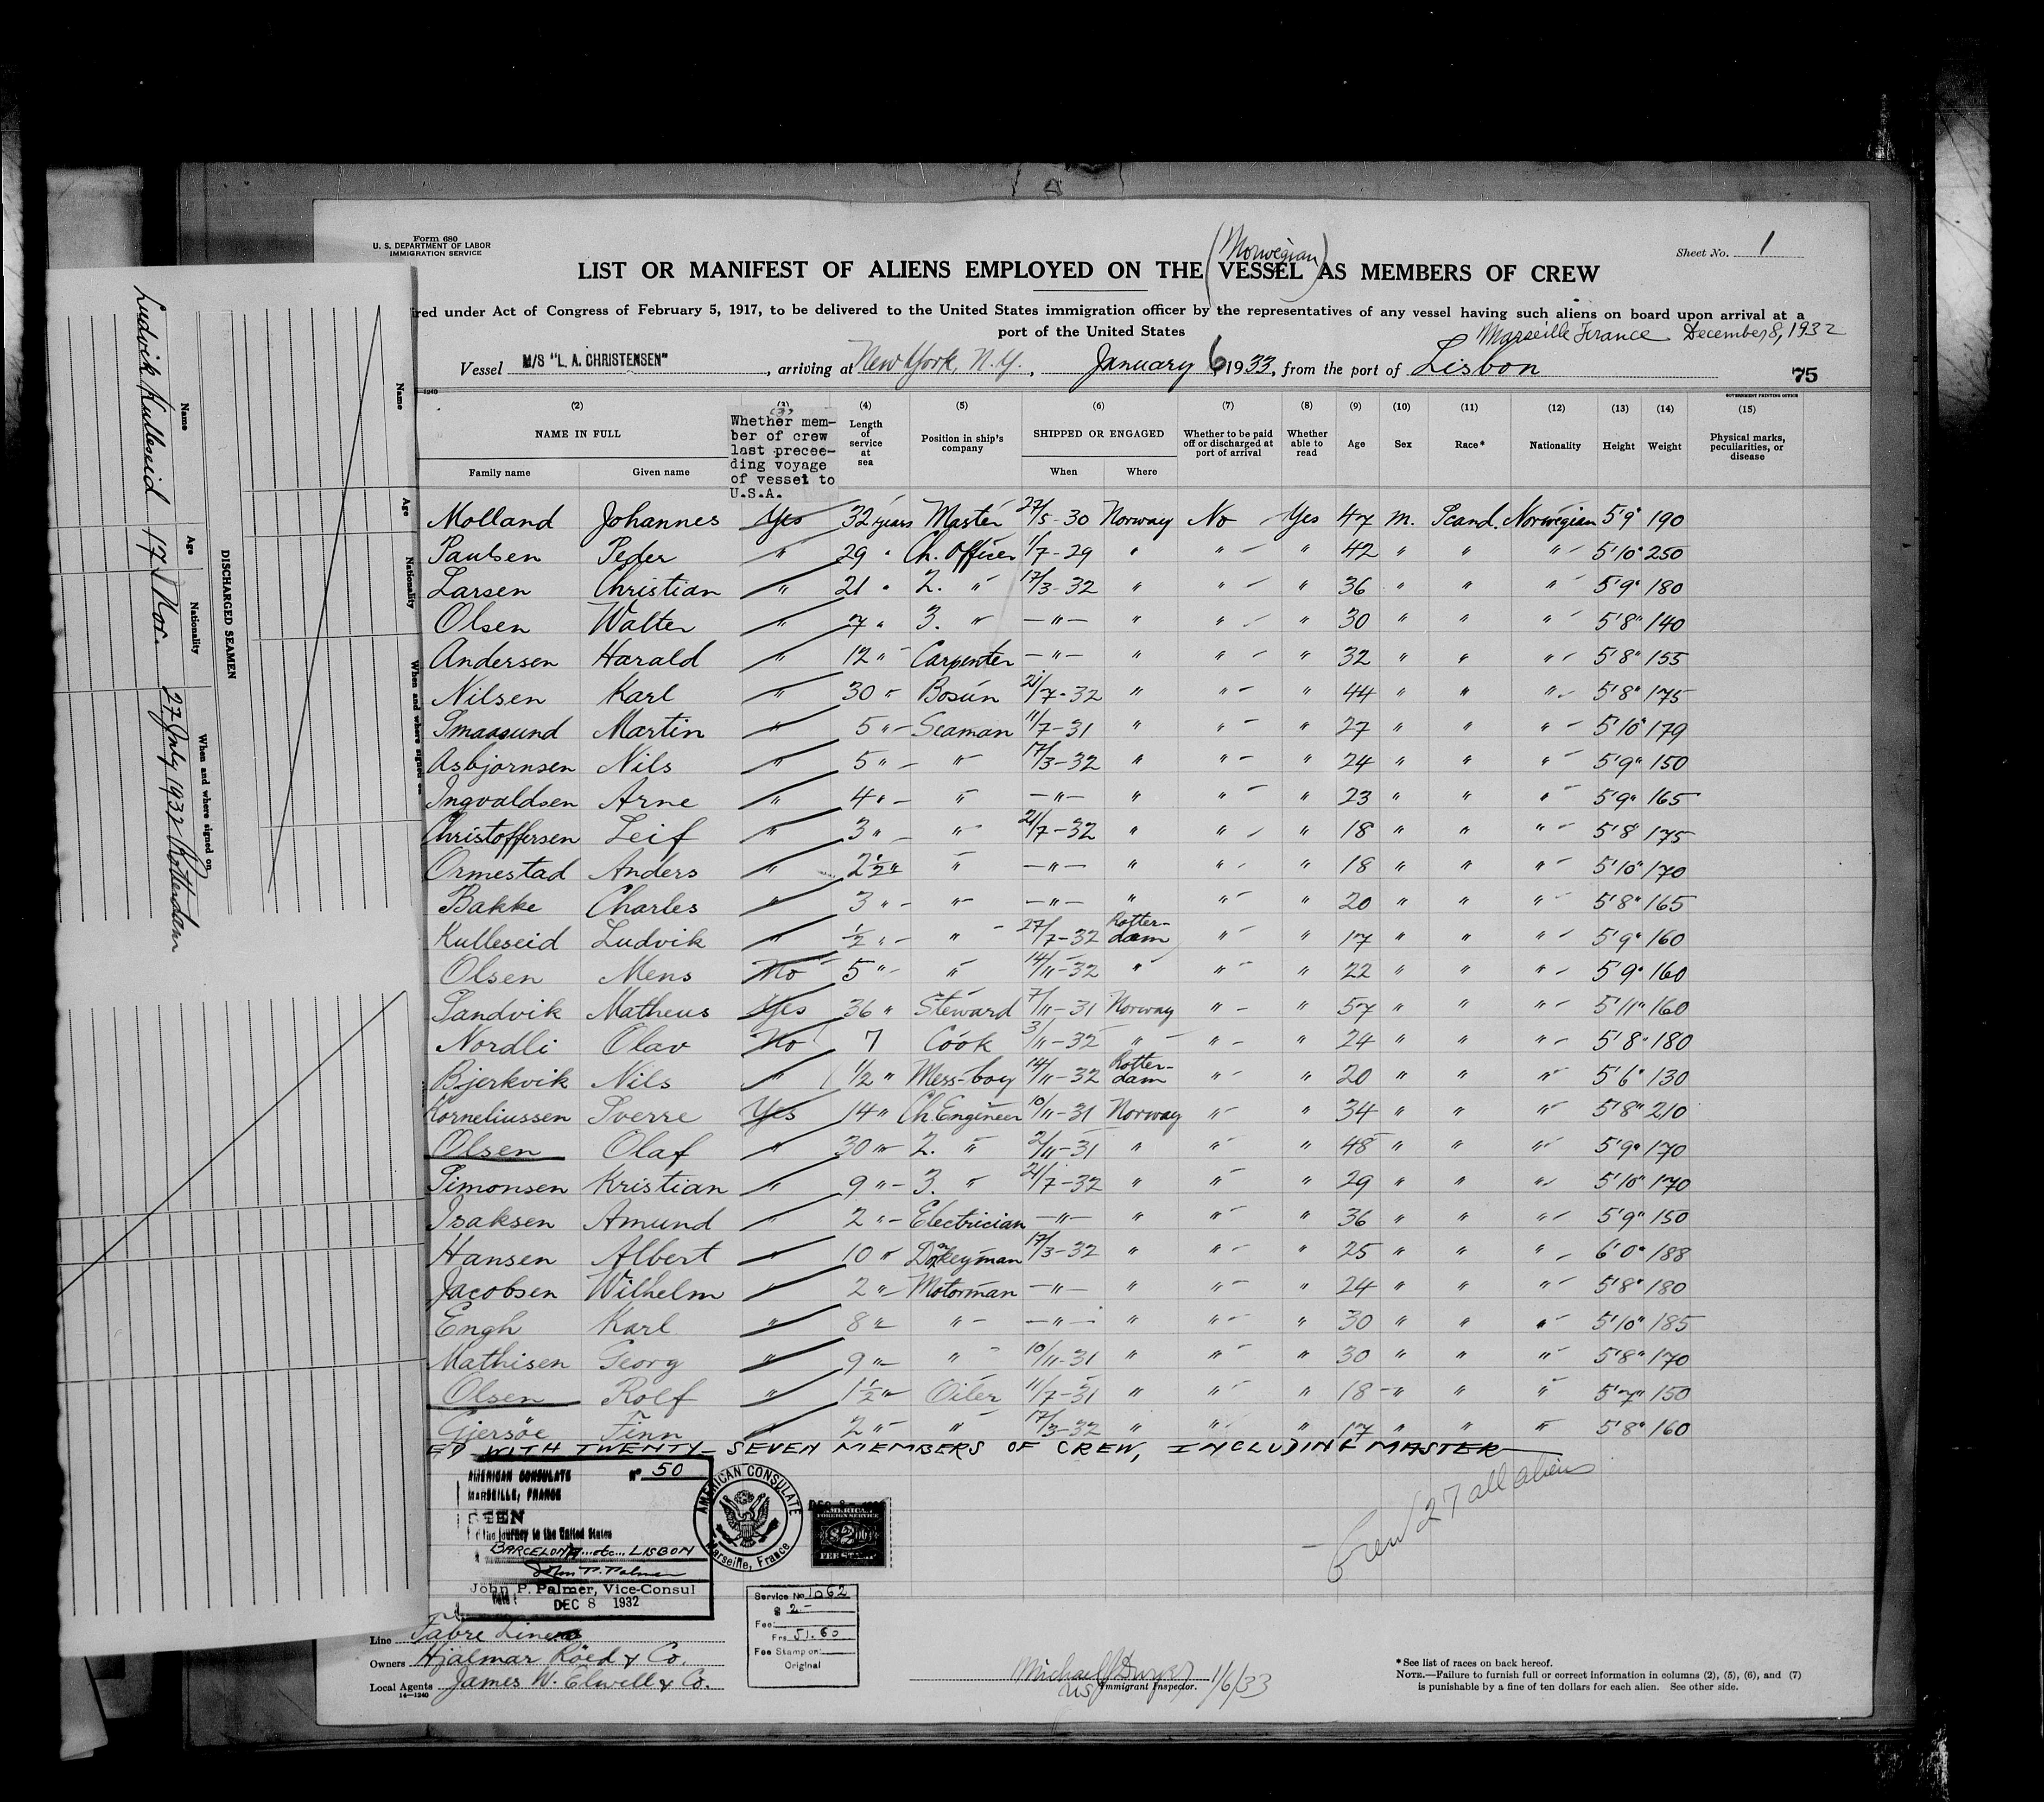 Form 680
U. S. DEPARTMENT OF LABOR
IMMIGRATION SERVICE
Sheet No. 1
(Norwegian)
LIST OR MANIFEST OF ALIENS EMPLOYED ON THE VESSEL AS MEMBERS OF CREW
red under Act of Congress of February 5, 1917, to be delivered to the United States immigration officer by the representatives of any vessel having such aliens on board upon arrival at a
port of the United States
Marseille France December 8, 1932
Vessel M/S "L. A. CHRISTENSEN", arriving at New York, N.Y., January 6, 1933, from the port of Lisbon
75
GOVERNMENT PRINTING OFFICE
(2) (3) (4) (5) (6) (7) (8) (9) (10) (11) (12) (13) (14) (15)
NAME IN FULL
Family name Given name
Whether mem-
ber of crew
last precee-
ding voyage
of vessel to
U.S.A.
Length of service at sea
Position in ship's company
SHIPPED OR ENGAGED
When Where
Whether to be paid off or discharged at port of arrival
Whether able to read
Age Sex Race* Nationality Height Weight
Physical marks, peculiarities, or disease
Molland Johannes Yes 32 years Master 27/5-30 Norway No Yes 47 m. Scand. Norwegian 5'9" 190
Paulsen Peder " 29 " Ch. Officer 1/7-29 " " " 42 " " " 5'10" 250
Larsen Christian " 21 " 2. " 17/3-32 " " " 36 " " " 5'9" 180
Olsen Walter " 7 " 3. " -"- " " " 30 " " " 5'8" 140
Andersen Harald " 12 " Carpenter -"- " " " 32 " " " 5'8" 155
Nilsen Karl " 30 " Bosun 21/7-32 " " " 44 " " " 5'8" 175
Smaasund Martin " 5 " Seaman 11/7-31 " " " 27 " " " 5'10" 179
Asbjornsen Nils " 5 " " 17/3-32 " " " 24 " " " 5'9" 150
Ingvaldsen Arne " 4 " " -"- " " " 23 " " " 5'9" 165
Christoffersen Leif " 3 " " 21/7-32 " " " 18 " " " 5'8" 175
Ormestad Anders " 2 1/2 " " -"- " " " 18 " " " 5'10" 170
Bakke Charles " 3 " " -"- " " " 20 " " " 5'8" 165
Kulleseid Ludvik " 1/2 " " 27/7-32 Rotter-dam " " 17 " " " 5'9" 160
Olsen Mens No 5 " " 14/11-32 " " " 22 " " " 5'9" 160
Sandvik Matheus Yes 36 " Steward 7/11-31 Norway " " 57 " " " 5'11" 160
Nordli Olav No 7 Cook 3/11-32 " " " 24 " " " 5'8" 180
Bjerkvik Nils " 1/2 " Mess-boy 14/11-32 Rotter-dam " " 20 " " " 5'6" 130
Korneliussen Sverre Yes 14 " Ch. Engineer 10/11-31 Norway " " 34 " " " 5'8" 210
Olsen Olaf " 30 " 2. " 2/11-31 " " " 48 " " " 5'9" 170
Simonsen Kristian " 9 " 3. " 21/7-32 " " " 29 " " " 5'10" 170
Isaksen Amund " 2 " Electrician -"- " " " 36 " " " 5'9" 150
Hansen Albert " 10 " Donkeyman 17/3-32 " " " 25 " " " 6'0" 188
Jacobsen Wilhelm " 2 " Motorman -"- " " " 24 " " " 5'8" 180
Engh Karl " 8 " " -"- " " " 30 " " " 5'10" 185
Mathisen Georg " 9 " " 10/11-31 " " " 30 " " " 5'8" 170
Olsen Rolf " 1 1/2 " Oiler 11/7-31 " " " 18 " " " 5'7" 150
Gjersöe Finn " 2 " " 17/3-32 " " " 17 " " " 5'8" 160
ED WITH TWENTY-SEVEN MEMBERS OF CREW, INCLUDING MASTER
Crew 27 all aliens
AMERICAN CONSULATE
MARSEILLE, FRANCE
Nº 50
SEEN
the journey to the United States
BARCELONA etc LISBON
John P. Palmer
John P. Palmer, Vice-Consul
DEC 8 1932
AMERICAN CONSULATE
Marseille, France
AMERICAN
FOREIGN SERVICE
$2.00
FEE STAMP
Service No. 1062
$ 2.-
Fee:
Frs 51.60
Fee Stamp on:
Original
Line Fabre Line
Owners Hjalmar Röed & Co.
Local Agents James W. Elwell & Co.
14—1240
1/6/33
US Immigrant Inspector.
*See list of races on back hereof.
NOTE.—Failure to furnish full or correct information in columns (2), (5), (6), and (7)
is punishable by a fine of ten dollars for each alien. See other side.
DISCHARGED SEAMEN
Name Age Nationality When and where signed on
Ludvik Kulleseid 17 Nor. 27 July 1932 Rotterdam
Name Age Nationality When and where signed on